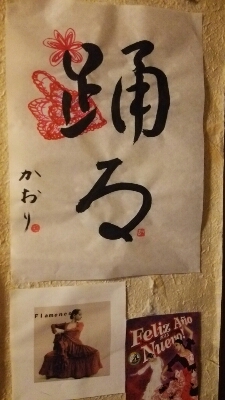 踊る
かおり
Flamenco
Feliz Año
Nuevo!